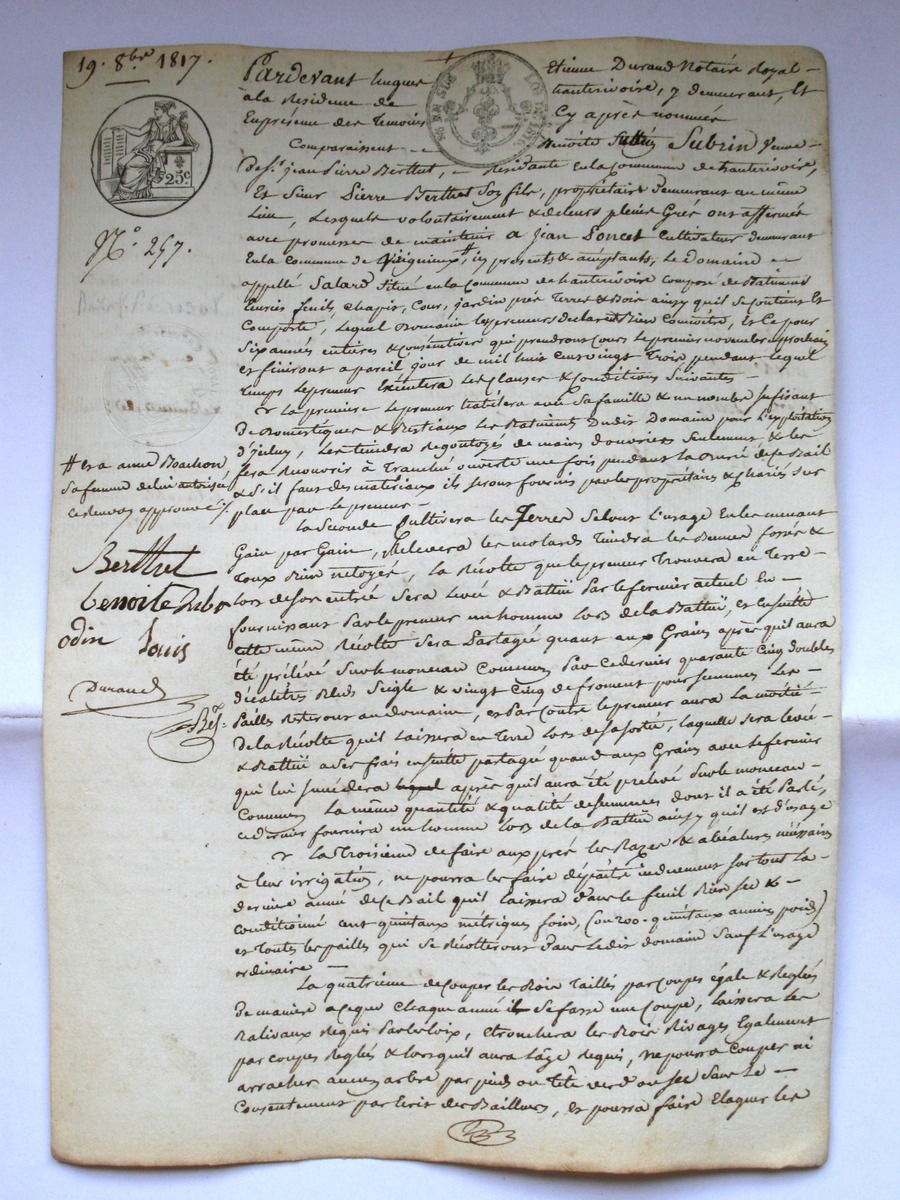 19. 8bre 1817.
25c
No. 257.
Pardevant Etienne Durand Notaire Royal
à la Residence de hauterivoire, y demeurant, Et
En présence des Temoins Cy après nommés
Comparaissent Benoite Subrin Veuve
de sr. jean Pierre Berthet, Residante en la Commune de hauterivoire,
Et Sieur Pierre Berthet Son fils, propriétaire demeurant au même
Lieu, Lesquels volontairement & de leurs pleins Grés ont affermé
avec promesses de maintenir a jean Poncet Cultivateur demeurant
En la Commune de # ici présents & acceptants, Le Domaine
appellé Salard Situé en la Commune de hauterivoire composé de Batimens
Cour, jardin prés Terres & Bois ainsy quil Se contient Et
Comporte, lequel Domaine les preneurs declarent Bien Connoitre, Et Ce pour
Six années entieres & consécutives qui prendront cours le premier novembre prochain
et finiront a pareil jour de mil huit cent vingt Trois pendant lequel
temps le preneur Exécutera les clauses & conditions Suivantes
La premiere le preneur habitera avec Sa famille & un nombre Sufisant
de Domestiques & Bestiaux les Batiments Dudit Domain pour L'exploitation
d'iceluy, Les tiendra de goutoyés de mains d'ouvriers Seulement, & les
fera Recouvrir à Tranché ouverte une fois pendant la Durée de ce Bail
& S'il faut des materiaux ils Seront fournis par les propriétaires & chariés Sur
place par le preneur
La Seconde Cultivera les Terres Selon L'usage En les menant
Gain par Gain, Relevera les molards Tiendra les Bermes fossés &
La Récolte que le preneur Trouvera en Terre
lors de Son entrée Sera Levée & Battüe Par le fermier actuel En
fournissant Par le preneur un homme Lors de la Battüe, et Ensuitte
cette même Récolte Sera Partagée quant aux Grains après quil aura
été prélevé Sur le monceau Commun Par ce dernier quarante Cinq doubles
décalitres Bled Seigle & vingt Cinq de froment pour Semences Les
Pailles Resteront au domaine, et Par Contre le preneur aura La moitié
de la Récolte quil Laissera en Terre Lors de Sa Sortie, laquelle Sera levée
& Battüe a Ses frais ensuitte partagée quand aux Grains avec le fermier
qui lui Succédera après quil aura été prelevé Sur le monceau
Commun La même quantité & qualité de Semences dont il a été Parlé,
ce dernier fournira un homme Lors de la Battüe ainsy quil est d'usage
La Troisieme de faire aux prés les Rases & abéalures nécéssaires
à leur irrigation, ne pourra les faire dépaitre indécemment Sur tout la
derniere année de ce Bail quil laissera dans le fenil Bien Sec &
conditionné cent quintaux métriques foin, (ou 200 quintaux ancien poids)
et toutes les pailles qui Se Récolteront Dans Ledit domain Sauf L'usage
ordinaire
La quatrieme de couper les Bois Taillés par coupes égale & Reglées
De maniere a ce que Chaque année il Se fasse une Coupe, Laissera les
Balivaux Requis Par la Loix, Etronchera les Bois Rivages Egalement
par coupes Reglés & lorsquil aura L'âge Requis, ne pourra Couper ni
arracher aucun arbre par pied ou Tête verd ou Sec Sans Le
Consentement par Ecrit des Bailleurs, Et pourra faire Elaguer les
# et a anne Bouchon
Sa femme de lui autorisée
ce Renvoy approuvé
Berthet
benoite Subr
odin Louis
Durand